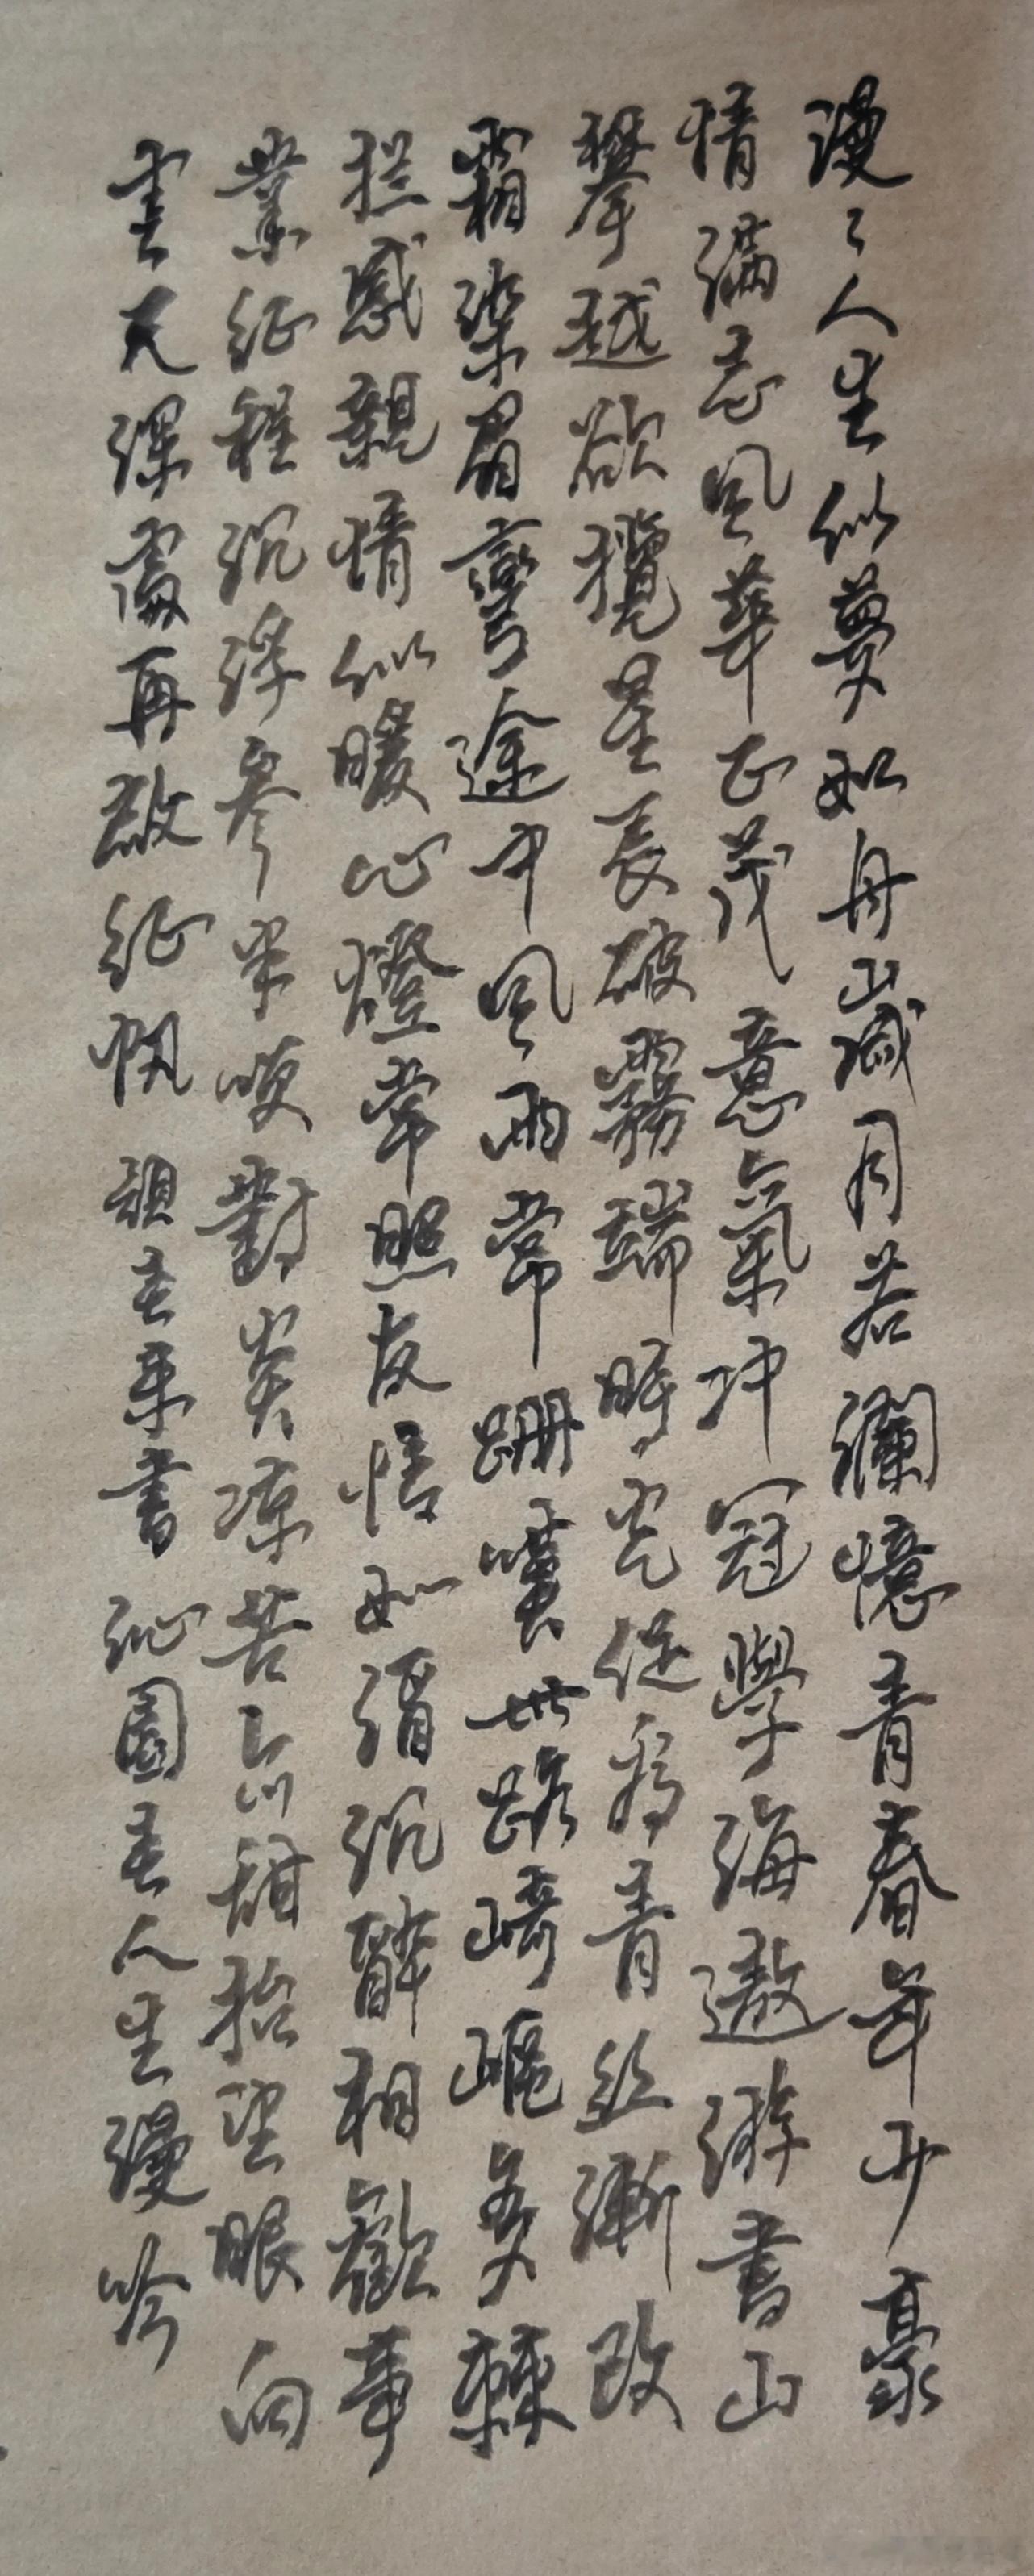 漫々人生似夢如舟歲月若瀾憶青春年少豪
情滿志風華正茂意氣冲冠學海遨游書山
攀越欲攬星辰破霧端時光促看青絲漸改
霜染眉彎途中風雨常跚嘆世路崎嶇多棘
拦感親情似暖心燈常照友情如酒沉醉相歡事
業征程沉浮參半哽對炎凉苦与甜抬望眼向
雲天深處再啟征帆 祖去來書 沁園春人生漫吟